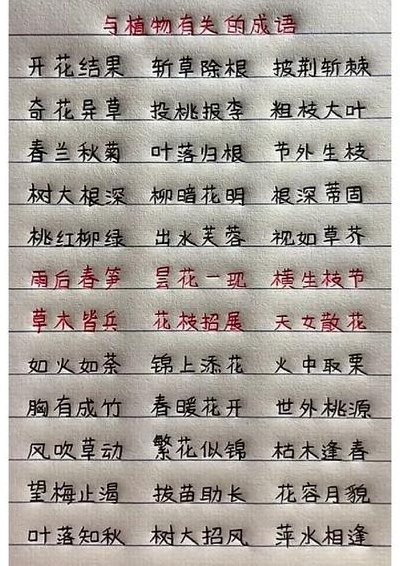 与植物有关的成语
开花结果 斩草除根 披荆斩棘
奇花异草 投桃报李 粗枝大叶
春兰秋菊 叶落归根 节外生枝
树大根深 柳暗花明 根深蒂固
桃红柳绿 出水芙蓉 视如草芥
雨后春笋 昙花一现 横生枝节
草木皆兵 花枝招展 天女散花
如火如荼 锦上添花 火中取栗
胸有成竹 春暖花开 世外桃源
风吹草动 繁花似锦 枯木逢春
望梅止渴 拔苗助长 花容月貌
叶落知秋 树大招风 萍水相逢